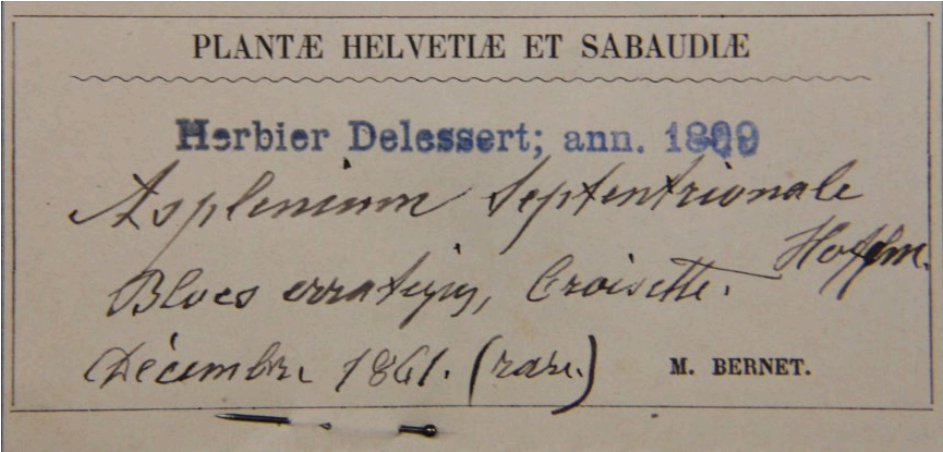 PLANTÆ HELVETIÆ ET SABAUDIÆ
Herbier Delessert; ann. 1899
Asplenium Septentrionale
Hoffm.
Blocs erratiques, Croisette.
Décembre 1861. (rare.)
M. BERNET.